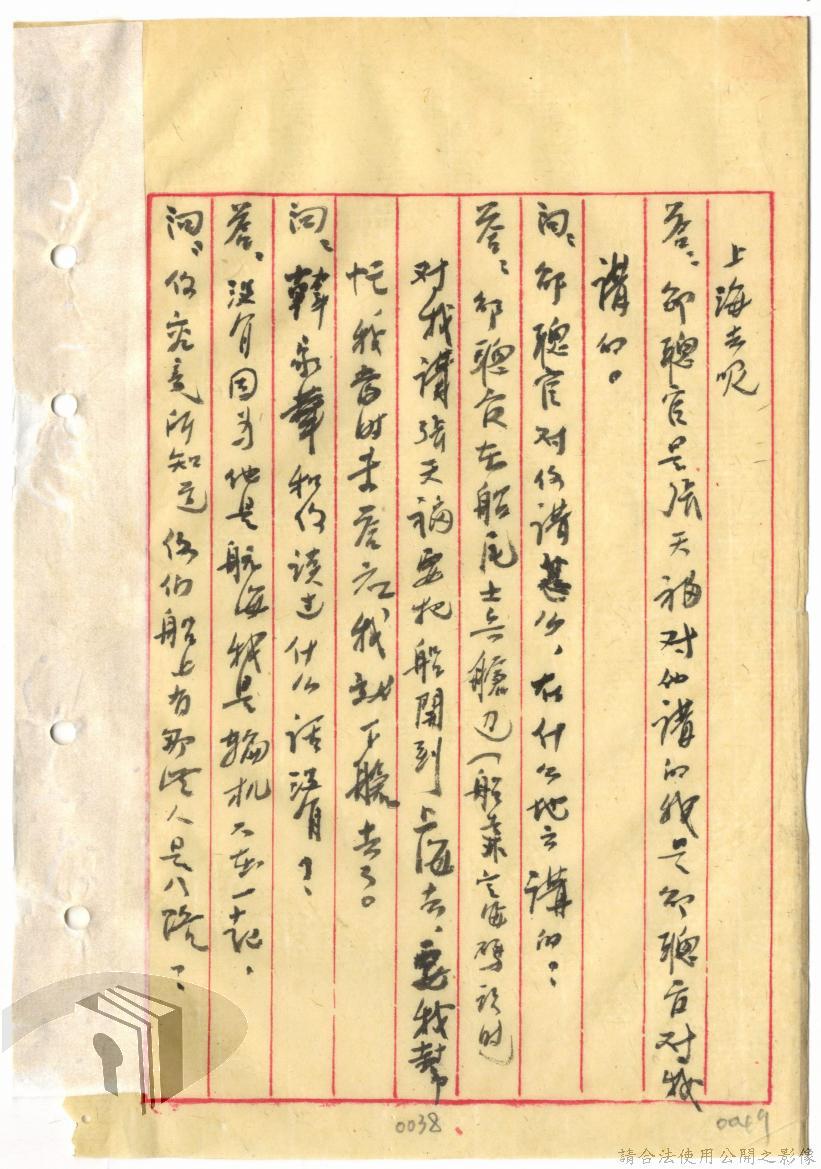 上海去呢
答：邰聰官是張天福对他講的我是邰聰官对我
講的。
问：邰聰官对你講甚么，在什么地方講的？
答：邰聰官在船尾士兵艙边（船靠定海碼头时
对我講張天福要把船開到上海去，要我幫
忙我当时未答应，我就下艙去了。
问：韓 華和你谈过什么话没有？
答：没有因为他是航海我是輪机不在一起，
问：你究竟所知道你们船上有那些人是八路？
0038.
0049
請合法使用公開之影像